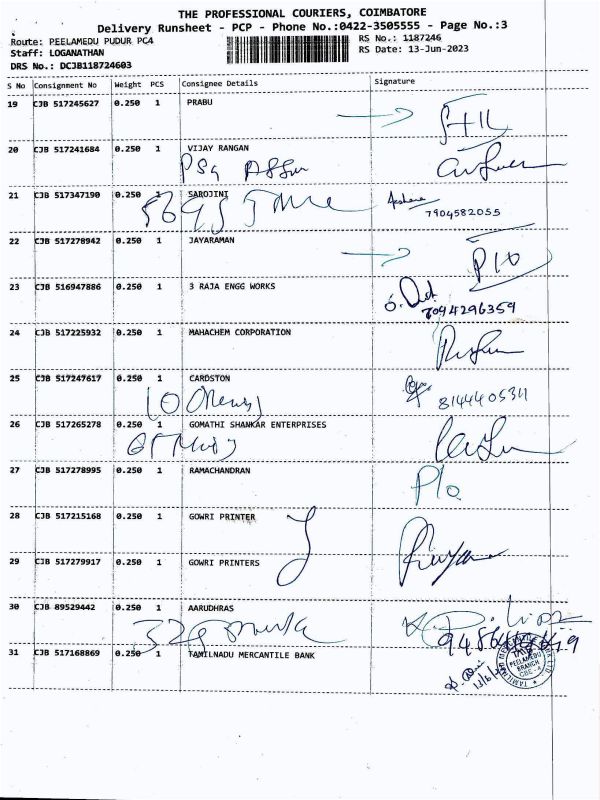 THE PROFESSIONAL COURIERS, COIMBATORE
Delivery Runsheet - PCP - Phone No.:0422-3505555 - Page No.:3
Route: PEELAMEDU PUDUR PC4
RS No.: 1187246
Staff: LOGANATHAN
RS Date: 13-Jun-2023
DRS No.: DCJB118724603
S No Consignment No Weight PCS Consignee Details Signature
19 CJB 517245627 0.250 1 PRABU
20 CJB 517241684 0.250 1 VIJAY RANGAN
PSG
21 CJB 517347190 0.250 1 SAROJINI
7904582055
22 CJB 517278942 0.250 1 JAYARAMAN
23 CJB 516947886 0.250 1 3 RAJA ENGG WORKS
7094296359
24 CJB 517225932 0.250 1 MAHACHEM CORPORATION
25 CJB 517247617 0.250 1 CARDSTON
8144405311
26 CJB 517265278 0.250 1 GOMATHI SHANKAR ENTERPRISES
27 CJB 517278995 0.250 1 RAMACHANDRAN
P/o
28 CJB 517215168 0.250 1 GOWRI PRINTER
29 CJB 517279917 0.250 1 GOWRI PRINTERS
30 CJB 89529442 0.250 1 AARUDHRAS
31 CJB 517168869 0.250 1 TAMILNADU MERCANTILE BANK
PEELAMEDU
BRANCH